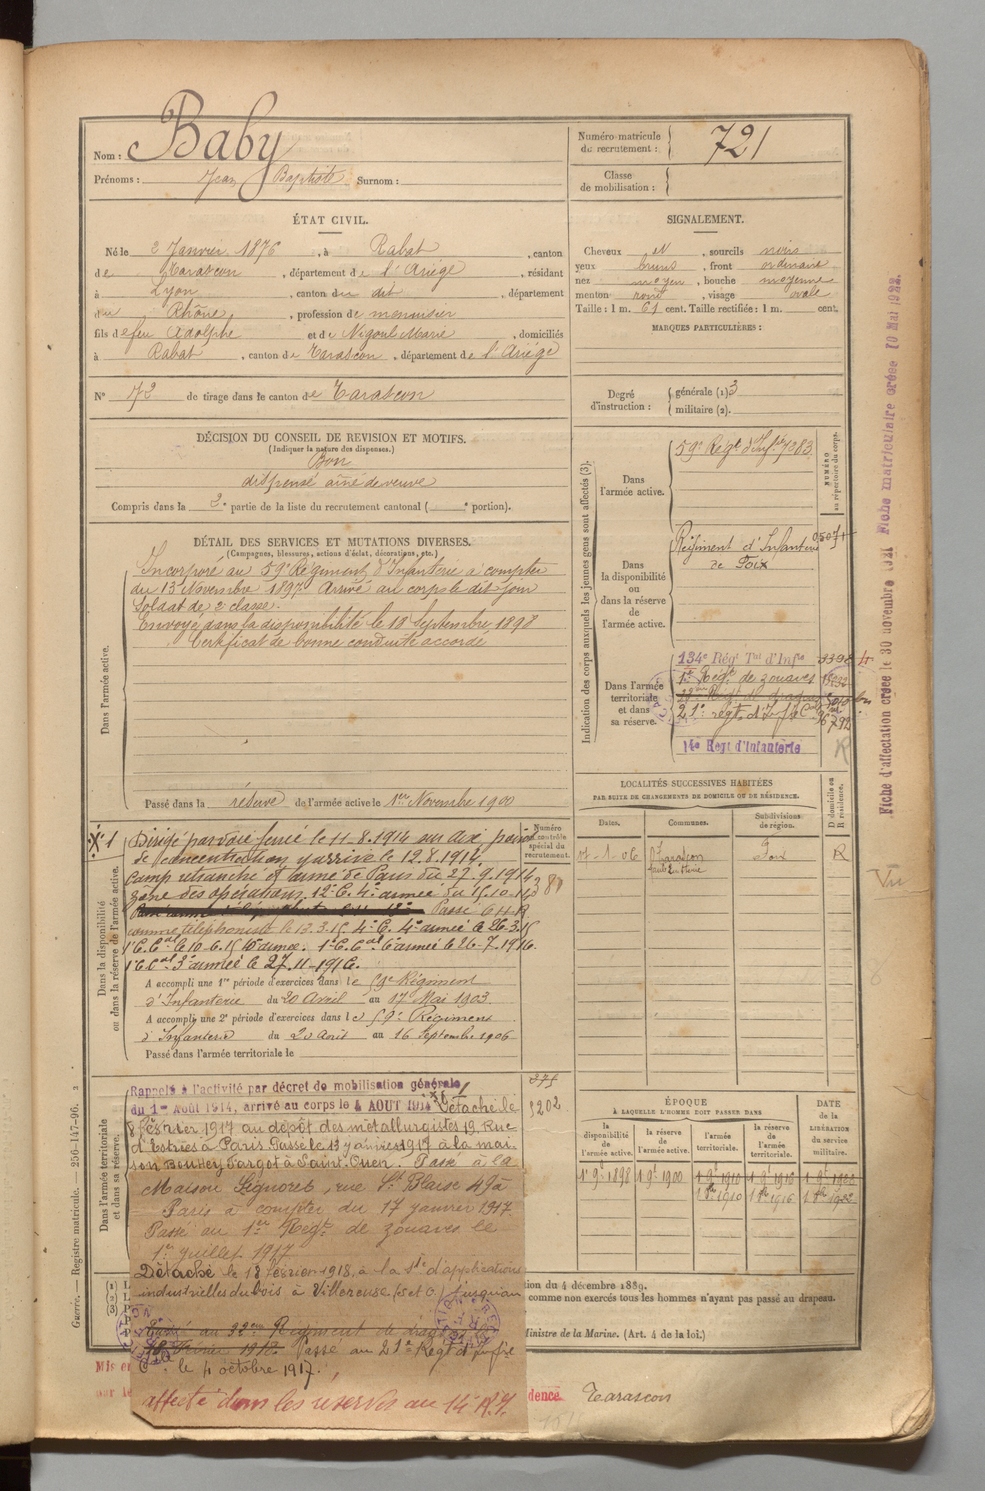 Nom : Baby
Prénoms : Jean Baptiste Surnom :
Numéro matricule du recrutement : 721
Classe de mobilisation :
ÉTAT CIVIL.
Né le 2 Janvier 1876, à Rabat, canton
de Tarascon, département de l'Ariège, résidant
à Lyon, canton du dit, département
du Rhône, profession de menuisier
fils de feu Adolphe et de Nigoul Marie, domiciliés
à Rabat, canton de Tarascon, département de l'Ariège
N° 72 de tirage dans le canton de Tarascon
SIGNALEMENT.
Cheveux N, sourcils noirs
yeux bruns, front ordinaire
nez moyen, bouche moyenne
menton rond, visage ovale
Taille : 1 m. 61 cent. Taille rectifiée : 1 m. cent.
MARQUES PARTICULIÈRES :
Degré d'instruction : générale (1) 3
militaire (2).
DÉCISION DU CONSEIL DE REVISION ET MOTIFS.
(Indiquer la nature des dispenses.)
Bon
dispensé aîné de veuve
Compris dans la 2e partie de la liste du recrutement cantonal ( e portion).
DÉTAIL DES SERVICES ET MUTATIONS DIVERSES.
(Campagnes, blessures, actions d'éclat, décorations, etc.)
Dans l'armée active.
Incorporé au 59e Régiment d'Infanterie à compter
du 13 Novembre 1897 Arrivé au corps le dit jour
Soldat de 2e classe.
Envoyé dans la disponibilité le 18 Septembre 1898
Certificat de bonne conduite accordé
Passé dans la réserve de l'armée active le 1er Novembre 1900
Indication des corps auxquels les jeunes gens sont affectés (3).
NUMÉRO au répertoire du corps.
Dans l'armée active.
59e Régt d'Infie 7283
Dans la disponibilité ou dans la réserve de l'armée active.
Régiment d'Infanterie
de Foix
Dans l'armée territoriale et dans sa réserve.
134e Régt Tal d'Infie 3398
1er Régt de zouaves
21e régt d'Inf Cale
14e Régt d'Infanterie
R
LOCALITÉS SUCCESSIVES HABITÉES
PAR SUITE DE CHANGEMENTS DE DOMICILE OU DE RÉSIDENCE.
Dates. Communes. Subdivisions de région. D domicile ou R résidence.
Tarascon Foix R
Dans la disponibilité ou dans la réserve de l'armée active.
Numéro au contrôle spécial du recrutement.
X 1 Dirigé par voie ferrée le 11.8.1914 sur
de concentration y arrive le 12.8.1914.
Camp retranché et armée de Paris du 27.9.1914
zône des opérations. 12e C. 4e armée du 15.10.14
Passé
comme téléphoniste le 13.3.15 4e C. 4e armée le 26.3.15
1er C. Cal le 10.6.15 10e armée. 1er C. Cal 6e armée le 26.7.1916.
1er C Cal 3e armée le 27.11.1916.
A accompli une 1re période d'exercices dans le 59e Régiment
d'Infanterie du 20 Avril au 17 Mai 1903.
A accompli une 2e période d'exercices dans le 59e Régiment
d'Infanterie du 20 Août au 16 Septembre 1906
Passé dans l'armée territoriale le
Dans l'armée territoriale et dans sa réserve.
Rappelé à l'activité par décret de mobilisation générale
du 1er Août 1914, arrivé au corps le 4 AOUT 1914 Détaché le
8 février 1917 au dépôt des métallurgistes 19, Rue
d'Estrées à Paris Passé le 13 janvier 1917 à la mai-
son Bouhey Fargot à Saint-Ouen. Passé à la
Maison Signoret, rue St Blaise 49 à
Paris à compter du 17 janvier 1917.
Passé au 1er Régt de zouaves le
1er juillet 1917
Détaché le 18 février 1918, à la Sté d'applications
industrielles du bois à Villeneuve (S et O)
Passé au 32eme Régiment de
18 Février 1918. Passé au 21e Régt d'Inffie
Cale le 4 octobre 1917.
affecté dans les réserves au 14e R.I.
375
5202
ÉPOQUE
À LAQUELLE L'HOMME DOIT PASSER DANS
la disponibilité de l'armée active. la réserve de l'armée active. l'armée territoriale. la réserve de l'armée territoriale. DATE de la LIBÉRATION du service militaire.
1er 9bre 1898 1er 9bre 1900 1er 9bre 1910 1er 9bre 1916 1er 9bre 1922
tion du 4 décembre 1889.
comme non exercés tous les hommes n'ayant pas passé au drapeau.
Ministre de la Marine. (Art. 4 de la loi.)
Mis en
par le
dence Tarascon
Guerre. — Registre matricule. — 256-147-96.
Fiche d'affectation créée le 30 novembre 1921 Fiche matriculaire créée 10 Mai 1922.
Vu